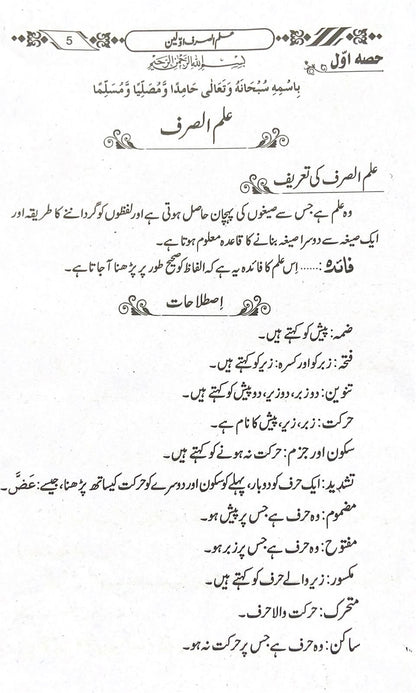 حصہ اوّل
علم الصرف اوّلین
5
بِسْمِ اللهِ الرَّحْمٰنِ الرَّحِيْمِ
بِاسْمِهٖ سُبْحَانَهٗ وَتَعَالٰى حَامِدًا وَّمُصَلِّيًا وَّمُسَلِّمًا
علم الصرف
علم الصرف کی تعریف
وہ علم ہے جس سے صیغوں کی پہچان حاصل ہوتی ہے اور لفظوں کو گرداننے کا طریقہ اور
ایک صیغہ سے دوسرا صیغہ بنانے کا قاعدہ معلوم ہوتا ہے۔
فائدہ:...... اِس علم کا فائدہ یہ ہے کہ الفاظ کو صحیح طور پر پڑھنا آ جاتا ہے۔
اِصطلاحات
ضمہ: پیش کو کہتے ہیں۔
فتحہ: زبر کو اور کسرہ: زیر کو کہتے ہیں۔
تنوین: دو زبر، دو زیر، دو پیش کو کہتے ہیں۔
حرکت: زبر، زیر، پیش کا نام ہے۔
سکون اور جزم: حرکت نہ ہونے کو کہتے ہیں۔
تشدید: ایک حرف کو دوبار، پہلے کو سکون اور دوسرے کو حرکت کیساتھ پڑھنا، جیسے: عَضَّ۔
مضموم: وہ حرف ہے جس پر پیش ہو۔
مفتوح: وہ حرف ہے جس پر زبر ہو۔
مکسور: زیر والے حرف کو کہتے ہیں۔
متحرک: حرکت والا حرف۔
ساکن: وہ حرف ہے جس پر حرکت نہ ہو۔